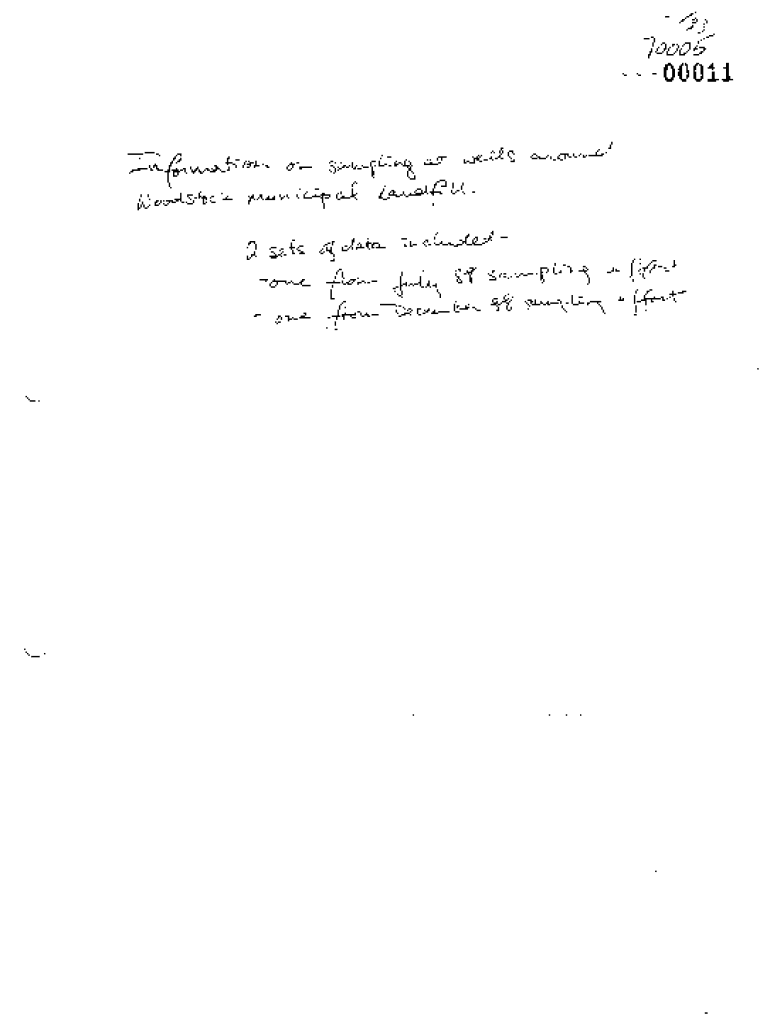 70005
00011
Information on sampling at wells around
Woodstock Municipal Landfill.
2 sets of data included -
- one from July 88 sampling effort
- one from December 88 sampling effort